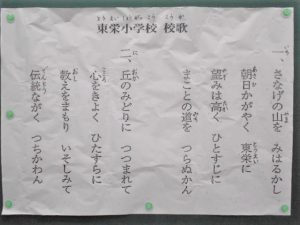 とうえいしょうがっこう こうか
東栄小学校 校歌
一、さなげの山を みはるかし
朝日かがやく 東栄に
望みは高く ひとすじに
まことの道を つらぬかん
二、丘のみどりに つつまれて
心をきよく ひたすらに
教えをまもり いそしみて
伝統ながく つちかわん